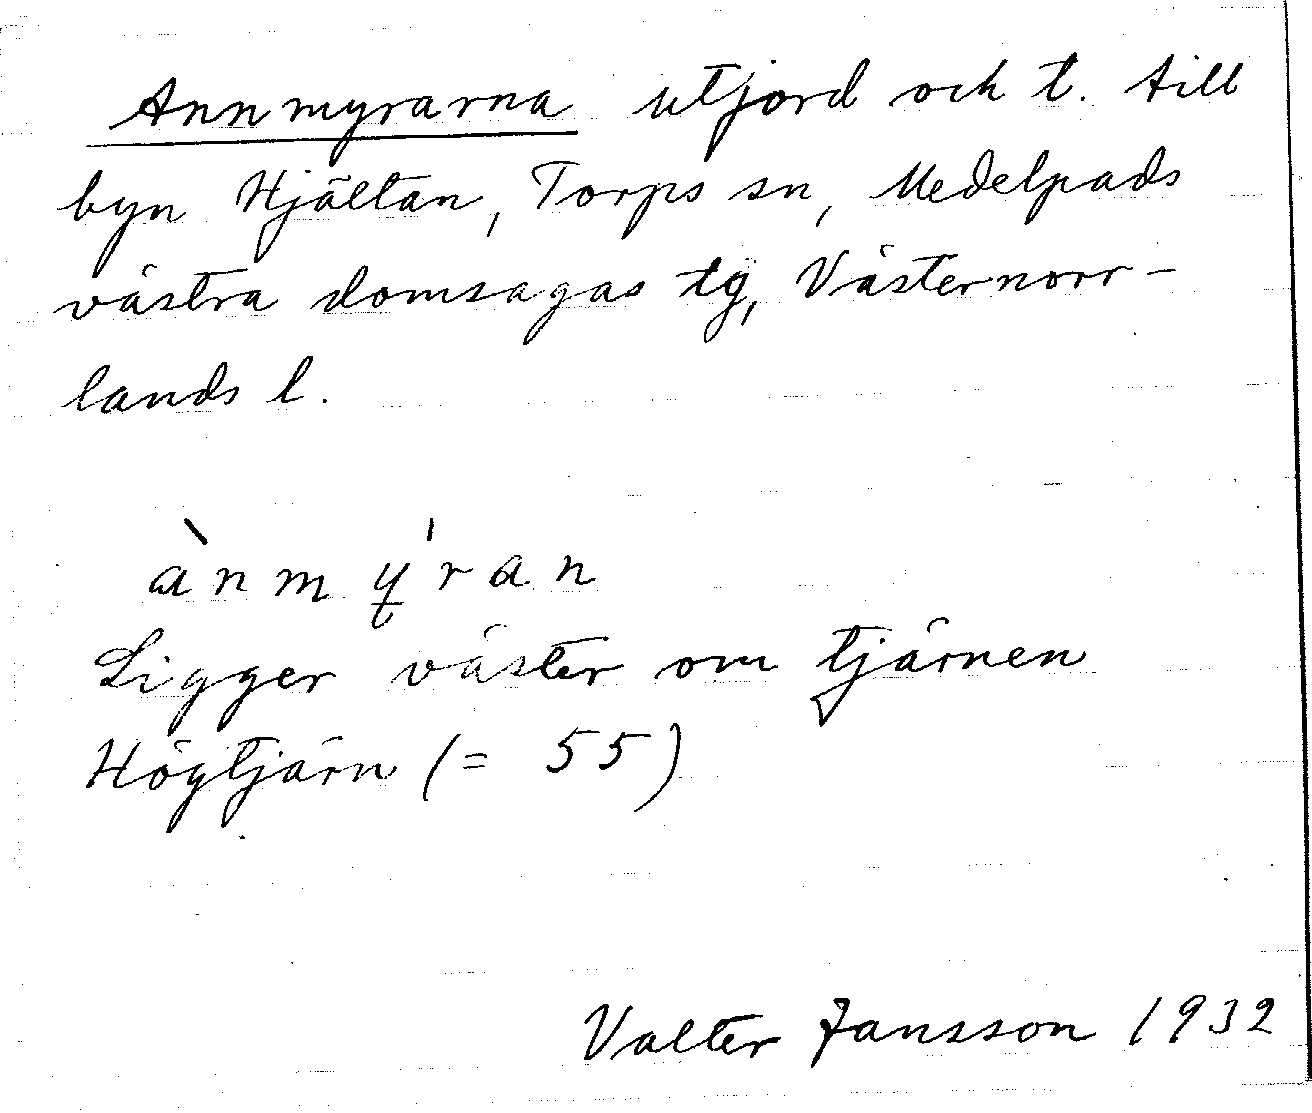 Annmyrarna utjord och t. till
byn Hjältan, Torps sn, Medelpads
västra domsagas tg, Västernorr-
lands l.
ànmý̵ran
Ligger väster om tjärnen
Högtjärn (= 55)
Valter Jansson 1932